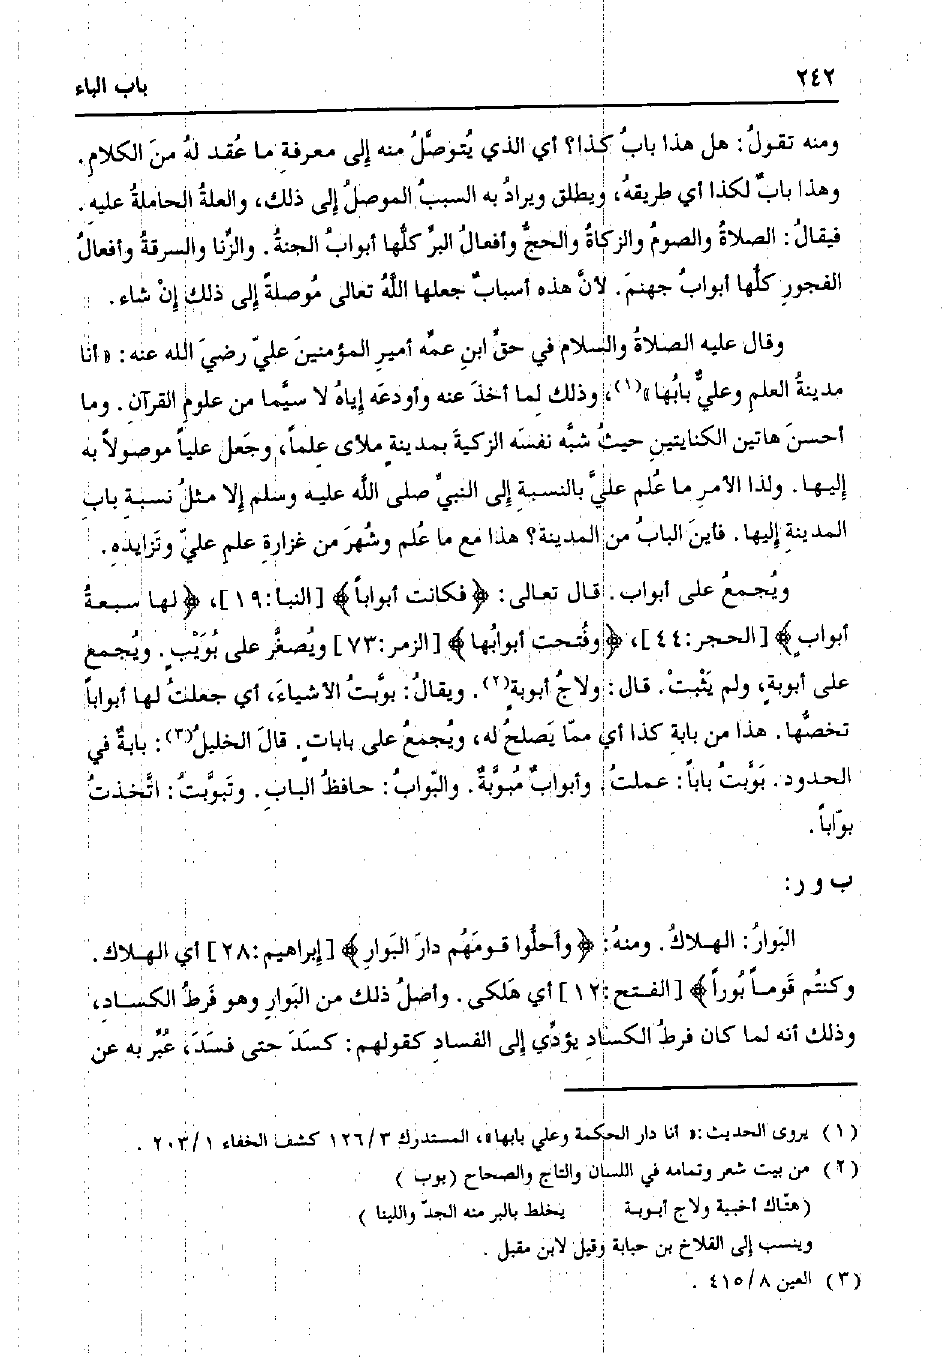 ٢٤٢ باب الباء
ومنه تقولُ: هل هذا بابُ كذا؟ أي الذي يُتوصَّلُ منه إلى معرفةِ ما عُقد لهُ منَ الكلامِ.
وهذا بابٌ لكذا أي طريقهُ، ويطلق ويرادُ به السببُ الموصلُ إلى ذلك، والعلةُ الحاملةُ عليهِ.
فيقالُ: الصلاةُ والصومُ والزكاةُ والحجُّ وأفعالُ البرِّ كلُّها أبوابُ الجنةُ. والزِّنا والسرقةُ وأفعالُ
الفجورِ كلُّها أبوابُ جهنمَ. لأنَّ هذه أسبابٌ جعلها اللَّهُ تعالى مُوصلةً إلى ذلك إنْ شاء.
وقال عليه الصلاةُ والسلام في حقِّ ابنِ عمِّه أميرِ المؤمنينَ عليّ رضيَ الله عنه: «أنا
مدينةُ العلمِ وعليٌّ بابُها»(١)، وذلك لِما أخذَ عنه وأودعَه إياهُ لا سيَّما من علومِ القرآنِ. وما
أحسنَ هاتين الكنايتينِ حيثُ شبَّه نفسَه الزكيةَ بمدينةٍ ملأى عِلماً، وجَعل علياً موصولاً به
إليها. ولذا الأمرِ ما عُلم عليَّ بالنسبةِ إلى النبيِّ صلى اللَّه عليه وسلم إلا مثلُ نسبةِ بابِ
المدينةِ إليها. فأينَ البابُ من المدينة؟ هذا مع ما عُلم وشُهرَ من غزارةِ علمِ عليّ وتَزايدِهِ.
ويُجمعُ على أبواب. قال تعالى: ﴿فكانت أبواباً﴾ [النبأ:١٩]، ﴿لها سبعةُ
أبوابٍ﴾ [الحجر:٤٤]، ﴿وفُتحت أبوابُها﴾ [الزمر:٧٣] ويُصغَّر على بُوَيْبٍ. ويُجمع
على أبوبة، ولم يَثْبتْ. قال: ولاجُ أبوبةٍ(٢). ويقالُ: بوَّبتُ الأشياءَ، أي جعلتُ لها أبواباً
تخصُّها. هذا من بابةِ كذا أي ممّا يَصلحُ له، ويُجمعُ على باباتٍ. قالَ الخليلُ(٣): بابةٌ في
الحدود. بَوَّبتُ باباً: عملتُ. وأبوابٌ مُبوَّبةٌ. والبّوابُ: حافظُ البابِ. وتَبوَّبتُ: اتَّخذتُ
بوّاباً.
ب و ر:
البَوارُ: الهلاكُ. ومنهُ: ﴿وأحلُّوا قومَهُم دارَ البَوارِ﴾ [إبراهيم:٢٨] أي الهلاك.
وكنتُم قَوماً بُوراً﴾ [الفتح:١٢] أي هَلكى. وأصلُ ذلك من البَوارِ وهو فَرطُ الكسادِ،
وذلك أنه لما كان فرطُ الكسادِ يؤدِّي إلى الفسادِ كقولهم: كسَدَ حتى فسَدَ، عُبِّر به عن
(١) يروى الحديث: «أنا دار الحكمة وعلي بابها»، المستدرك ١٢٦/٣ كشف الخفاء ٢٠٣/١.
(٢) من بيت شعر وتمامه في اللسان والتاج والصحاح (بوب)
(هتّاك أخبية ولاج أبوبة يخلط بالبر منه الجدّ واللينا)
وينسب إلى القلاخ بن حبابة وقيل لابن مقبل.
(٣) العين ٤١٥/٨.